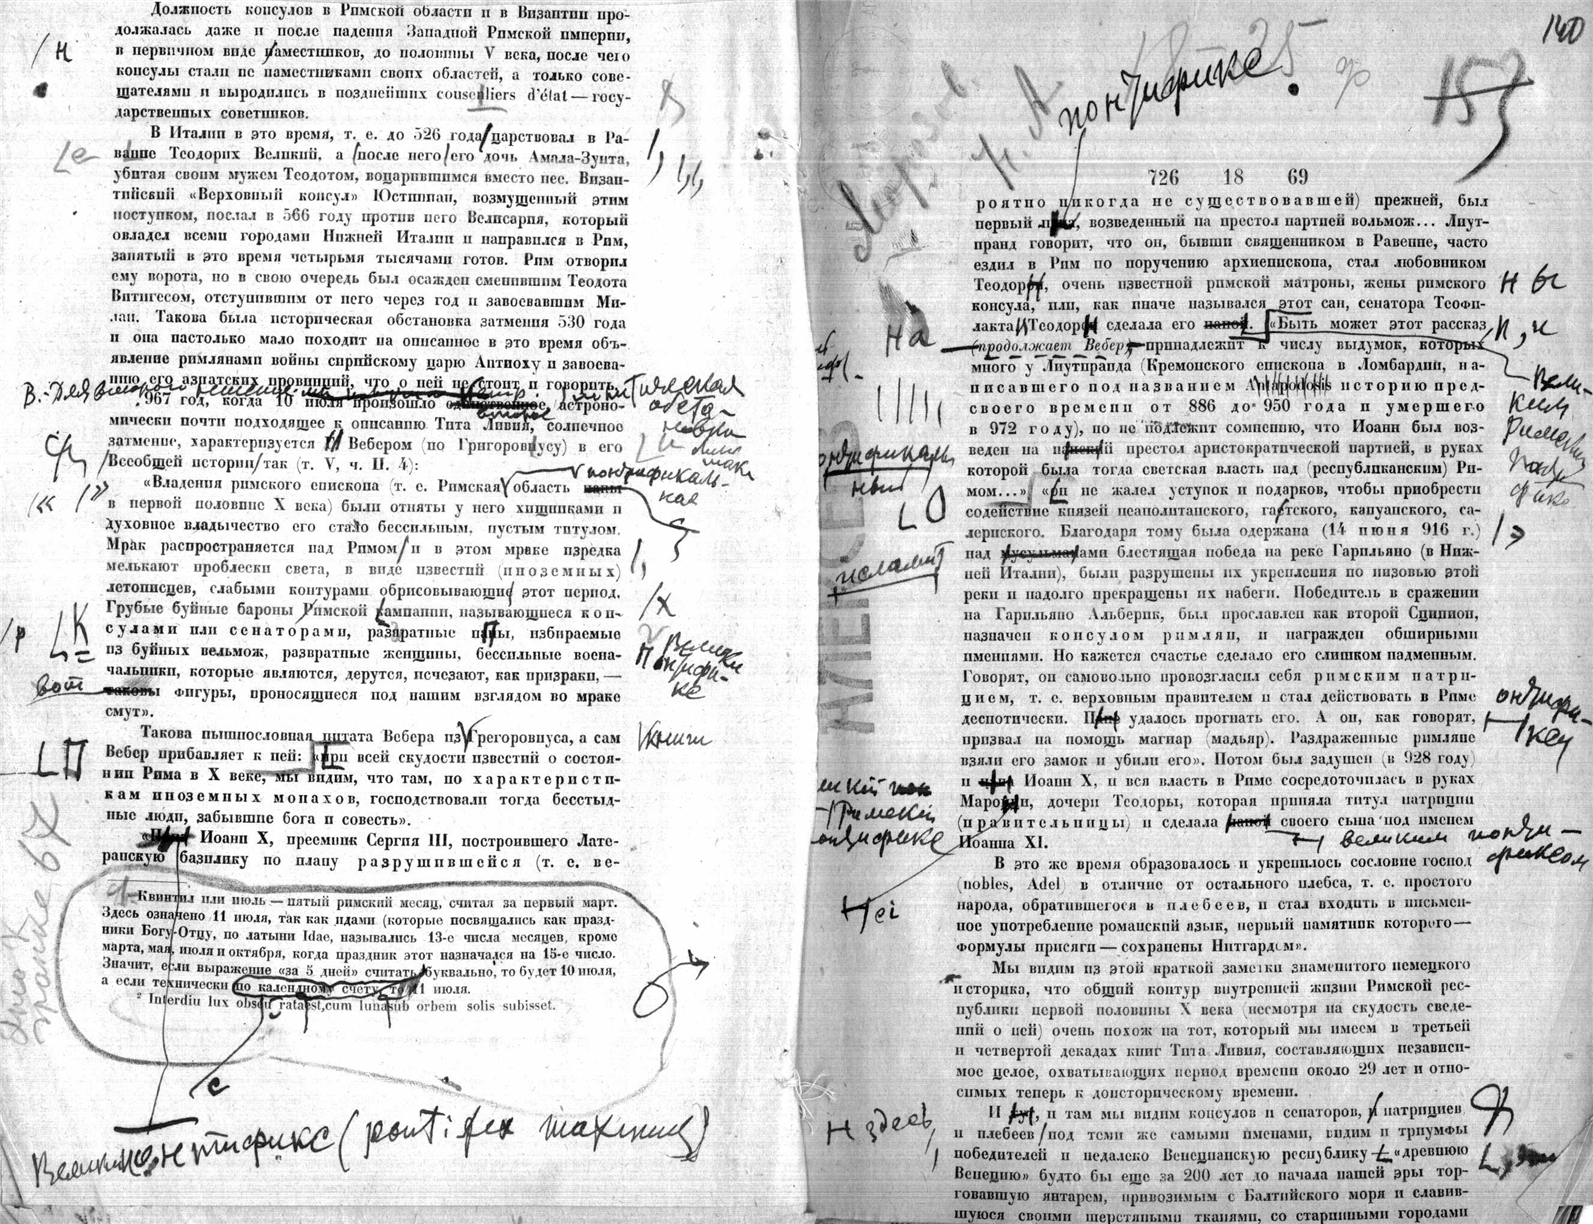 Должность консулов в Римской области и в Византии про-
должалась даже и после падения Западной Римской империи,
в первичном виде наместников, до половины V века, после чего
консулы стали не наместниками своих областей, а только сове-
щателями и выродились в позднейших conseilliers d'état — госу-
дарственных советников.
В Италии в это время, т. е. до 526 года царствовал в Ра-
ванне Теодорих Великий, а после него его дочь Амала-Зунта,
убитая своим мужем Теодотом, воцарившимся вместо нее. Визан-
тийский «Верховный консул» Юстиниан, возмущенный этим
поступком, послал в 566 году против него Велисария, который
овладел всеми городами Нижней Италии и направился в Рим,
занятый в это время четырьмя тысячами готов. Рим отворил
ему ворота, но в свою очередь был осажден сменившим Теодота
Витигесом, отступившим от него через год и завоевавшим Ми-
лан. Такова была историческая обстановка затмения 530 года
и она настолько мало походит на описанное в это время объ-
явление римлянами войны сирийскому царю Антиоху и завоева-
нию его азиатских провинций, что о ней не стоит и говорить.
967 год, когда 10 июля произошло единственное, астроно-
мически почти подходящее к описанию Тита Ливия, солнечное
затмение, характеризуется Вебером (по Григоровиусу) в его
Всеобщей истории так (т. V, ч. II. 4):
«Владения римского епископа (т. е. Римская область папы
в первой половине X века) были отняты у него хищниками и
духовное владычество его стало бессильным, пустым титулом.
Мрак распространяется над Римом и в этом мраке изредка
мелькают проблески света, в виде известий (иноземных)
летописцев, слабыми контурами обрисовывающие этот период.
Грубые буйные бароны Римской кампании, называющиеся кон-
сулами или сенаторами, развратные папы, избираемые
из буйных вельмож, развратные женщины, бессильные воена-
чальники, которые являются, дерутся, исчезают, как призраки, —
таковы фигуры, проносящиеся под нашим взглядом во мраке
смут».
Такова пышнословная цитата Вебера из Грегоровиуса, а сам
Вебер прибавляет к ней: «при всей скудости известий о состоя-
нии Рима в X веке, мы видим, что там, по характеристи-
кам иноземных монахов, господствовали тогда бесстыд-
ные люди, забывшие бога и совесть».
Иоанн X, преемник Сергия III, построившего Лате-
ранскую базилику по плану разрушившейся (т. е. ве-
Квинтил или июль — пятый римский месяц, считая за первый март.
Здесь означено 11 июля, так как идами (которые посвящались как празд-
ники Богу-Отцу, по латыни Idae, назывались 13-е числа месяцев, кроме
марта, мая, июля и октября, когда праздник этот назначался на 15-е число.
Значит, если выражение «за 5 дней» считать буквально, то будет 10 июля,
а если технически по календному счету, то 11 июля.
² Interdiu lux obscurata est, cum luna sub orbem solis subisset.
Великий понтификс (pontifex maximus)
/н
понтификаль-
ная
Великие
Понтифи-
ке
вот
книги
140
понтификс.
Морозов
Н. А.
153
726 18 69
роятно никогда не существовавшей) прежней, был
первый папа, возведенный на престол партией вольмож... Лиут-
пранд говорит, что он, бывши священником в Равенне, часто
ездил в Рим по поручению архиепископа, стал любовником
Теодоры, очень известной римской матроны, жены римского
консула, или, как иначе назывался этот сан, сенатора Теофи-
лакта. Теодора сделала его папой. «Быть может этот рассказ
(продолжает Вебер) принадлежит к числу выдумок, которых
много у Лиутпранда (Кремонского епископа в Ломбардии, на-
писавшего под названием Antapodosis историю пред-
своего времени от 886 до 950 года и умершего
в 972 году), но не подлежит сомнению, что Иоанн был воз-
веден на папский престол аристократической партией, в руках
которой была тогда светская власть над (республиканским) Ри-
мом...» «он не жалел уступок и подарков, чтобы приобрести
содействие князей неаполитанского, гаэтского, капуанского, са-
лернского. Благодаря тому была одержана (14 июня 916 г.)
над мусульманами блестящая победа на реке Гарильяно (в Ниж-
ней Италии), были разрушены их укрепления по низовью этой
реки и надолго прекращены их набеги. Победитель в сражении
на Гарильяно Альберик, был прославлен как второй Сципион,
назначен консулом римлян, и награжден обширными
имениями. Но кажется счастье сделало его слишком надменным.
Говорят, он самовольно провозгласил себя римским патри-
цием, т. е. верховным правителем и стал действовать в Риме
деспотически. Папе удалось прогнать его. А он, как говорят,
призвал на помощь магиар (мадьяр). Раздраженные римляне
взяли его замок и убили его». Потом был задушен (в 928 году)
и папа Иоанн X, и вся власть в Риме сосредоточилась в руках
Марозии, дочери Теодоры, которая приняла титул патриции
(правительницы) и сделала папой своего сына под именем
Иоанна XI.
В это же время образовалось и укрепилось сословие господ
(nobles, Adel) в отличие от остального плебса, т. е. простого
народа, обратившегося в плебеев, и стал входить в письмен-
ное употребление романский язык, первый памятник которого —
формулы присяги — сохранены Нитгардом».
Мы видим из этой краткой заметки знаменитого немецкого
историка, что общий контур внутренней жизни Римской рес-
публики первой половины X века (несмотря на скудость сведе-
ний о ней) очень похож на тот, который мы имеем в третьей
и четвертой декадах книг Тита Ливия, составляющих независи-
мое целое, охватывающих период времени около 29 лет и отно-
симых теперь к доисторическому времени.
И тут, и там мы видим консулов и сенаторов, и патрициев
и плебеев под теми же самыми именами, видим и триумфы
победителей и недалеко Венецианскую республику «древнюю
Венецию» будто бы еще за 200 лет до начала нашей эры тор-
говавшую янтарем, привозимым с Балтийского моря и славив-
шуюся своими шерстяными тканями, со старинными городами
На
исламит
великим понти-
фиксом
здесь,